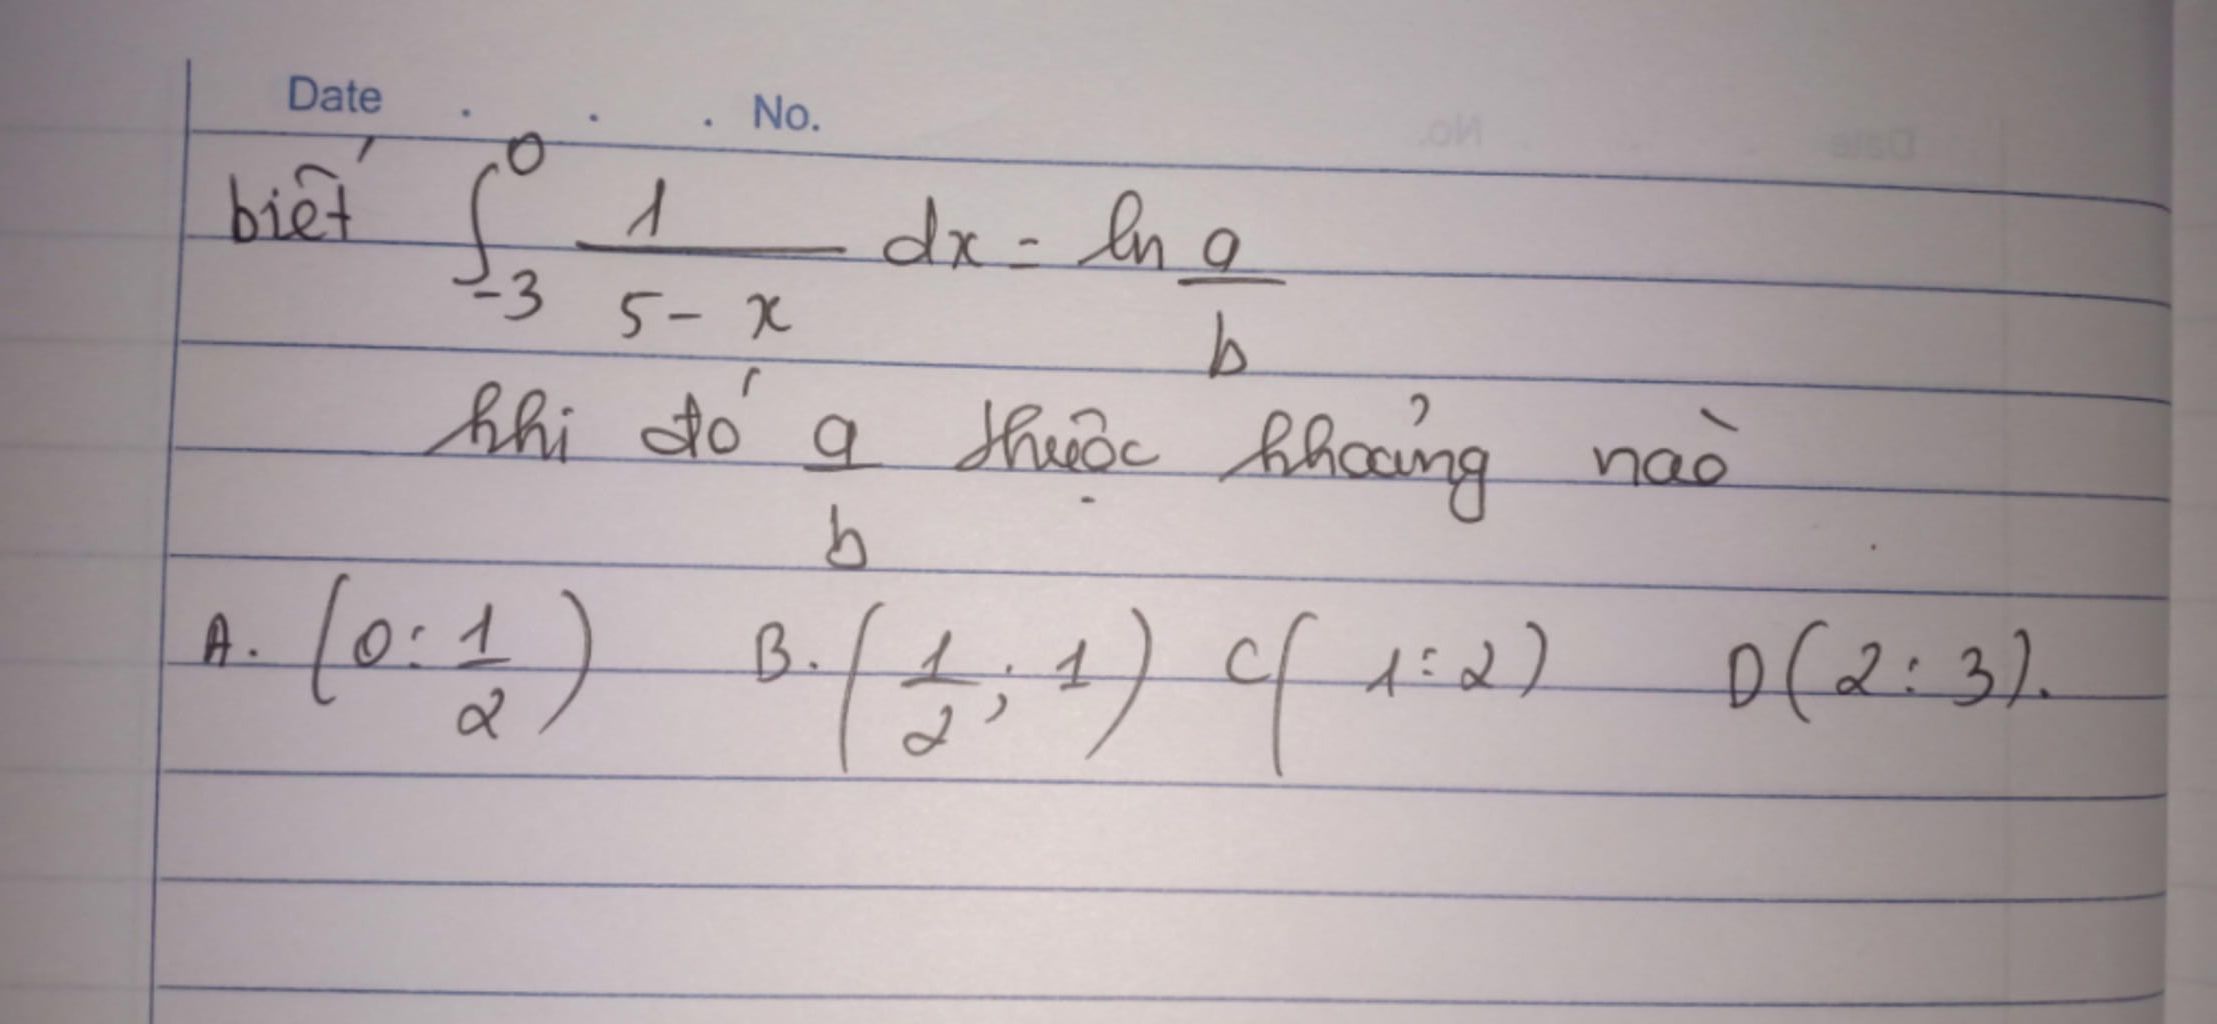 Date . . . No.
biết ∫_{-3}^{0} \frac{1}{5-x} dx = ln \frac{a}{b}
khi đó \frac{a}{b} thuộc khoảng nào
A. (0: \frac{1}{2}) B. (\frac{1}{2}; 1) C( 1:2) D(2:3).